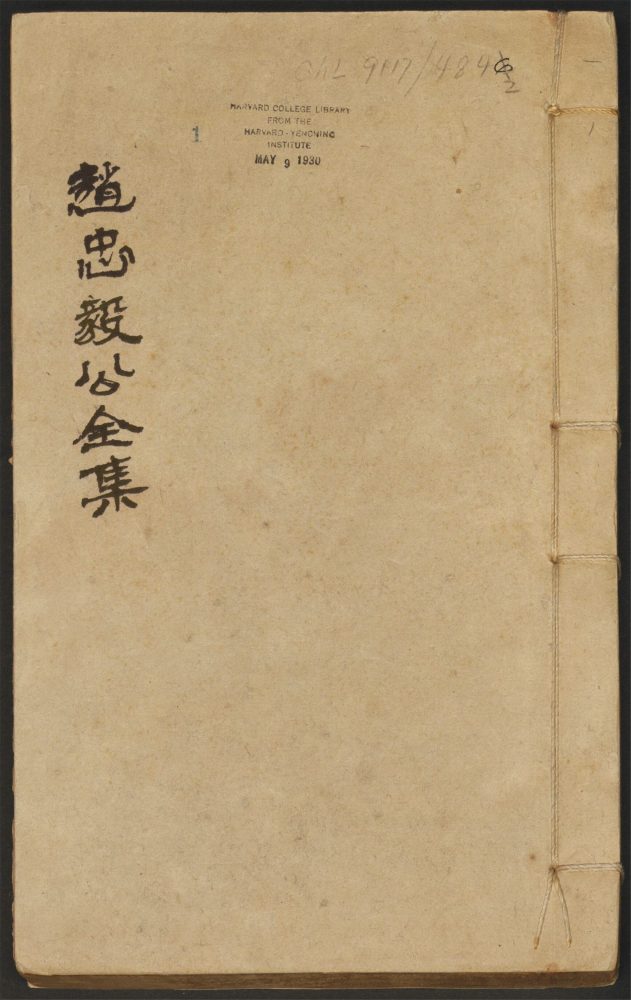 趙忠毅公全集
1
HARVARD COLLEGE LIBRARY
FROM THE
HARVARD-YENCHING
INSTITUTE
MAY 9 1930
一